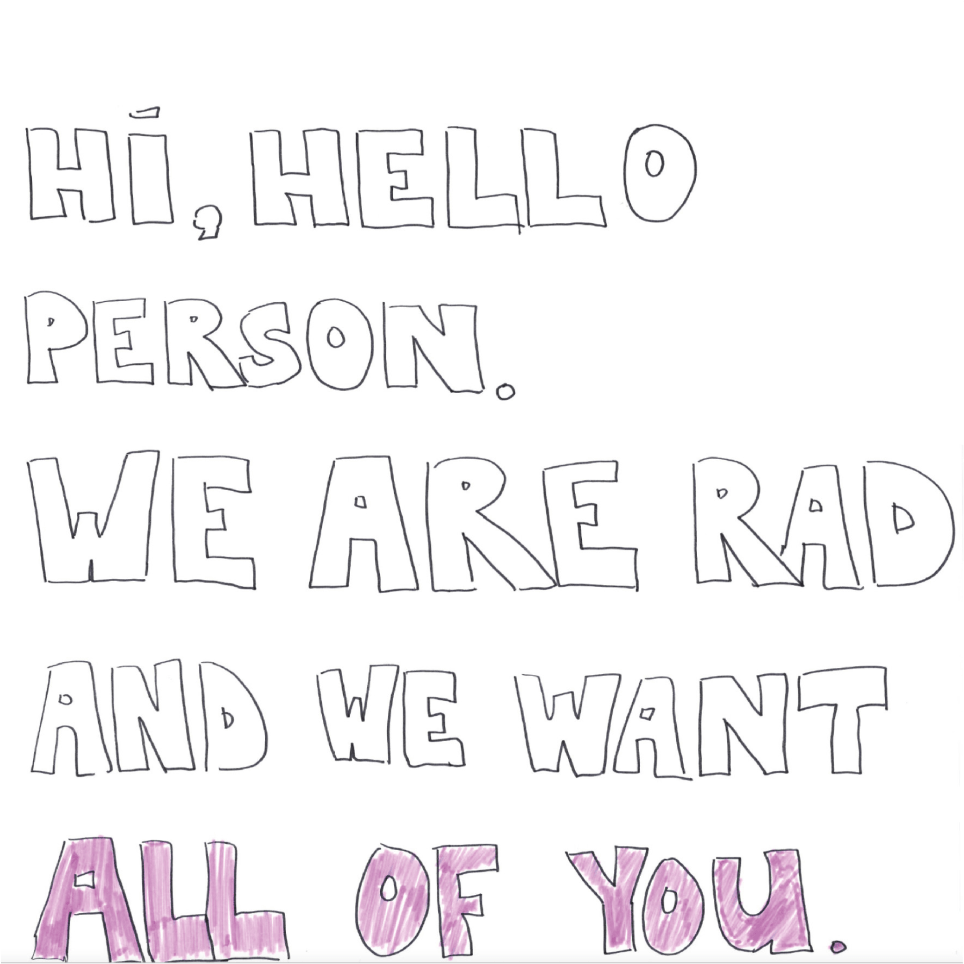 HI, HELLO
PERSON.
WE ARE RAD
AND WE WANT
ALL OF YOU.